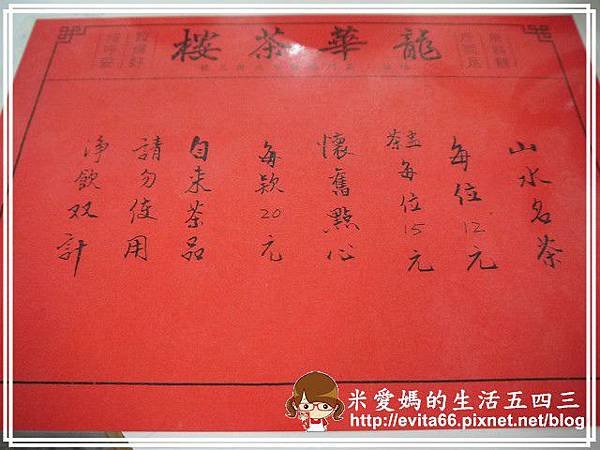 龍華茶楼
山水名茶
每位12元
茶盅每位15元
懷舊點心
每款20元
自来茶品
請勿使用
净飲双計
米愛媽的生活五四三
http://evita66.pixnet.net/blog